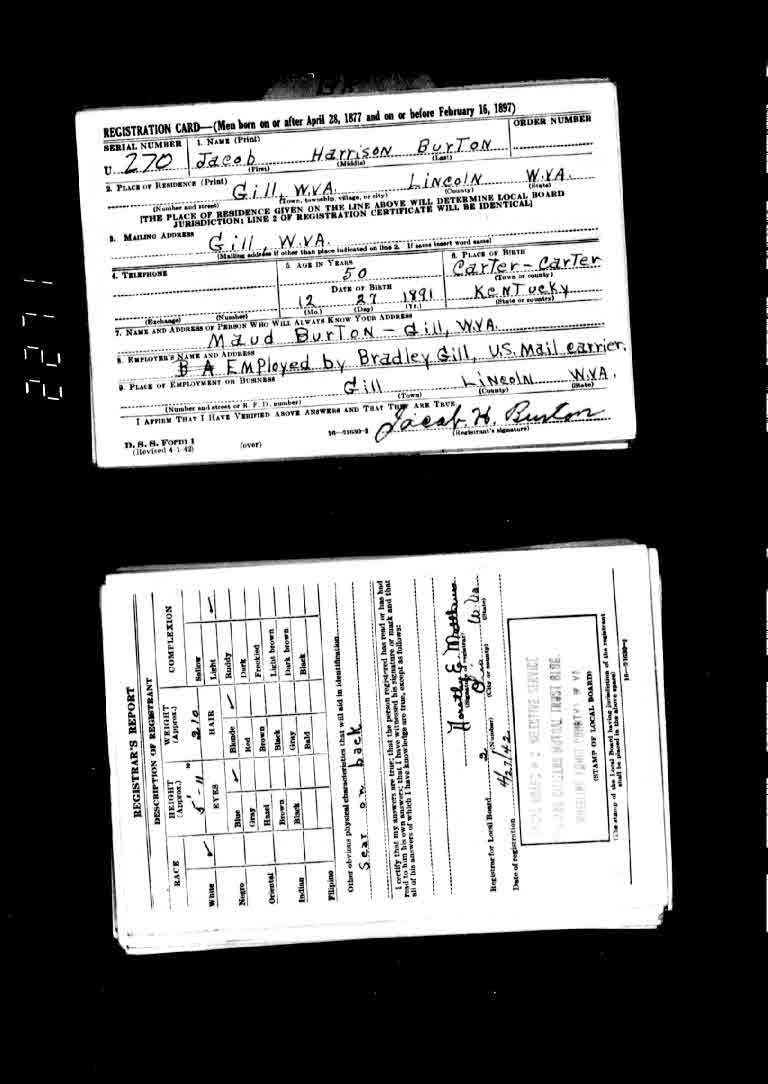 REGISTRATION CARD—(Men born on or after April 28, 1877 and on or before February 16, 1897)
SERIAL NUMBER 1. NAME (Print) ORDER NUMBER
U 270 Jacob Harrison Burton
(First) (Middle) (Last)
2. PLACE OF RESIDENCE (Print)
Gill, W.VA. Lincoln W.VA.
(Number and street) (Town, township, village, or city) (County) (State)
[THE PLACE OF RESIDENCE GIVEN ON THE LINE ABOVE WILL DETERMINE LOCAL BOARD
JURISDICTION; LINE 2 OF REGISTRATION CERTIFICATE WILL BE IDENTICAL]
3. MAILING ADDRESS
Gill, W.VA.
(Mailing address if other than place indicated on line 2. If same insert word same)
4. TELEPHONE 5. AGE IN YEARS 6. PLACE OF BIRTH
50 Carter-Carter
(Town or county)
DATE OF BIRTH
12 27 1891 Kentucky
(Exchange) (Number) (Mo.) (Day) (Yr.) (State or country)
7. NAME AND ADDRESS OF PERSON WHO WILL ALWAYS KNOW YOUR ADDRESS
Maud Burton - Gill, W.VA.
8. EMPLOYER'S NAME AND ADDRESS
Employed by Bradley Gill, U.S. Mail carrier.
9. PLACE OF EMPLOYMENT OR BUSINESS
Gill Lincoln W.VA.
(Number and street or R. F. D. number) (Town) (County) (State)
I AFFIRM THAT I HAVE VERIFIED ABOVE ANSWERS AND THAT THEY ARE TRUE.
Jacob H. Burton
D. S. S. Form 1
(Revised 4-1-42) (over) 16—21630-2 (Registrant's signature)
2271
REGISTRAR'S REPORT
DESCRIPTION OF REGISTRANT
RACE HEIGHT (Approx.) WEIGHT (Approx.) COMPLEXION
5'-11" 210 Sallow
White ✓ EYES HAIR Light ✓
Blue ✓ Blonde ✓ Ruddy
Negro Gray Red Dark
Hazel Brown Freckled
Oriental Brown Black Light brown
Black Gray Dark brown
Indian Bald Black
Filipino
Other obvious physical characteristics that will aid in identification
Scar on back
I certify that my answers are true; that the person registered has read or has had
read to him his own answers; that I have witnessed his signature or mark and that
all of his answers of which I have knowledge are true, except as follows:
Dorothy E. Matthews
(Signature of registrar)
Registrar for Local Board 2 W. Va.
(Number) (City or county) (State)
Date of registration 4/27/42
(STAMP OF LOCAL BOARD)
(The stamp of the Local Board having jurisdiction of the registrant
shall be placed in the above space)
16—21630-2